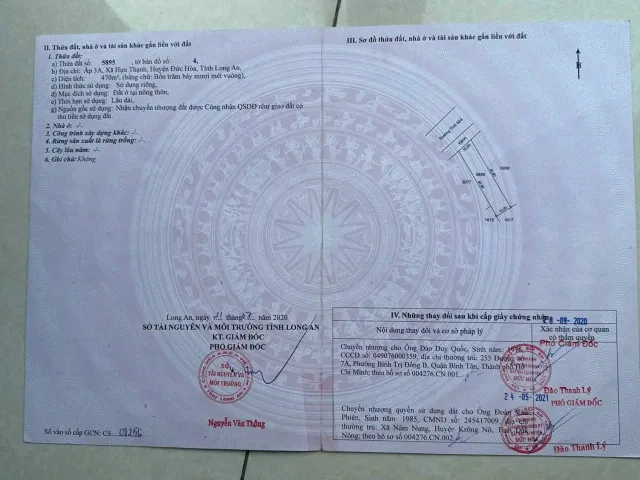 II. Thửa đất, nhà ở và tài sản khác gắn liền với đất
1. Thửa đất:
a) Thửa đất số: 5895, tờ bản đồ số: 4,
b) Địa chỉ: Ấp 3A, Xã Hựu Thạnh, Huyện Đức Hòa, Tỉnh Long An,
c) Diện tích: 470m², (bằng chữ: Bốn trăm bảy mươi mét vuông),
d) Hình thức sử dụng: Sử dụng riêng,
đ) Mục đích sử dụng: Đất ở tại nông thôn,
e) Thời hạn sử dụng: Lâu dài,
g) Nguồn gốc sử dụng: Nhận chuyển nhượng đất được Công nhận QSDĐ như giao đất có
thu tiền sử dụng đất.
2. Nhà ở: -/-.
3. Công trình xây dựng khác: -/-.
4. Rừng sản xuất là rừng trồng: -/-.
5. Cây lâu năm: -/-.
6. Ghi chú: Không.
Long An, ngày 11 tháng năm 2020
SỞ TÀI NGUYÊN VÀ MÔI TRƯỜNG TỈNH LONG AN
KT. GIÁM ĐỐC
PHÓ GIÁM ĐỐC
SỞ
TÀI NGUYÊN VÀ
MÔI TRƯỜNG
Nguyễn Văn Thắng
Số vào sổ cấp GCN: CS
III. Sơ đồ thửa đất, nhà ở và tài sản khác gắn liền với đất
B
5895
IV. Những thay đổi sau khi cấp giấy chứng nhận
28-09-2020
Nội dung thay đổi và cơ sở pháp lý
Xác nhận của cơ quan
có thẩm quyền
Chuyển nhượng cho Ông Đào Duy Quốc, Sinh năm:
CCCD số: 049076000359, địa chỉ thường trú: 255 Đường
7A, Phường Bình Trị Đông B, Quận Bình Tân, Thành phố
Chí Minh; theo hồ sơ số 004276.CN.001
PHÓ GIÁM ĐỐC
Đào Thanh Lý
24-05-2021
PHÓ GIÁM ĐỐC
Chuyển nhượng quyền sử dụng đất cho Ông Đoàn
Phiên, Sinh năm: 1985, CMND số: 245417009,
thường trú: Xã Nâm Nung, Huyện Krông Nô,
Nông; theo hồ sơ số 004276.CN.002
Đào Thanh Lý